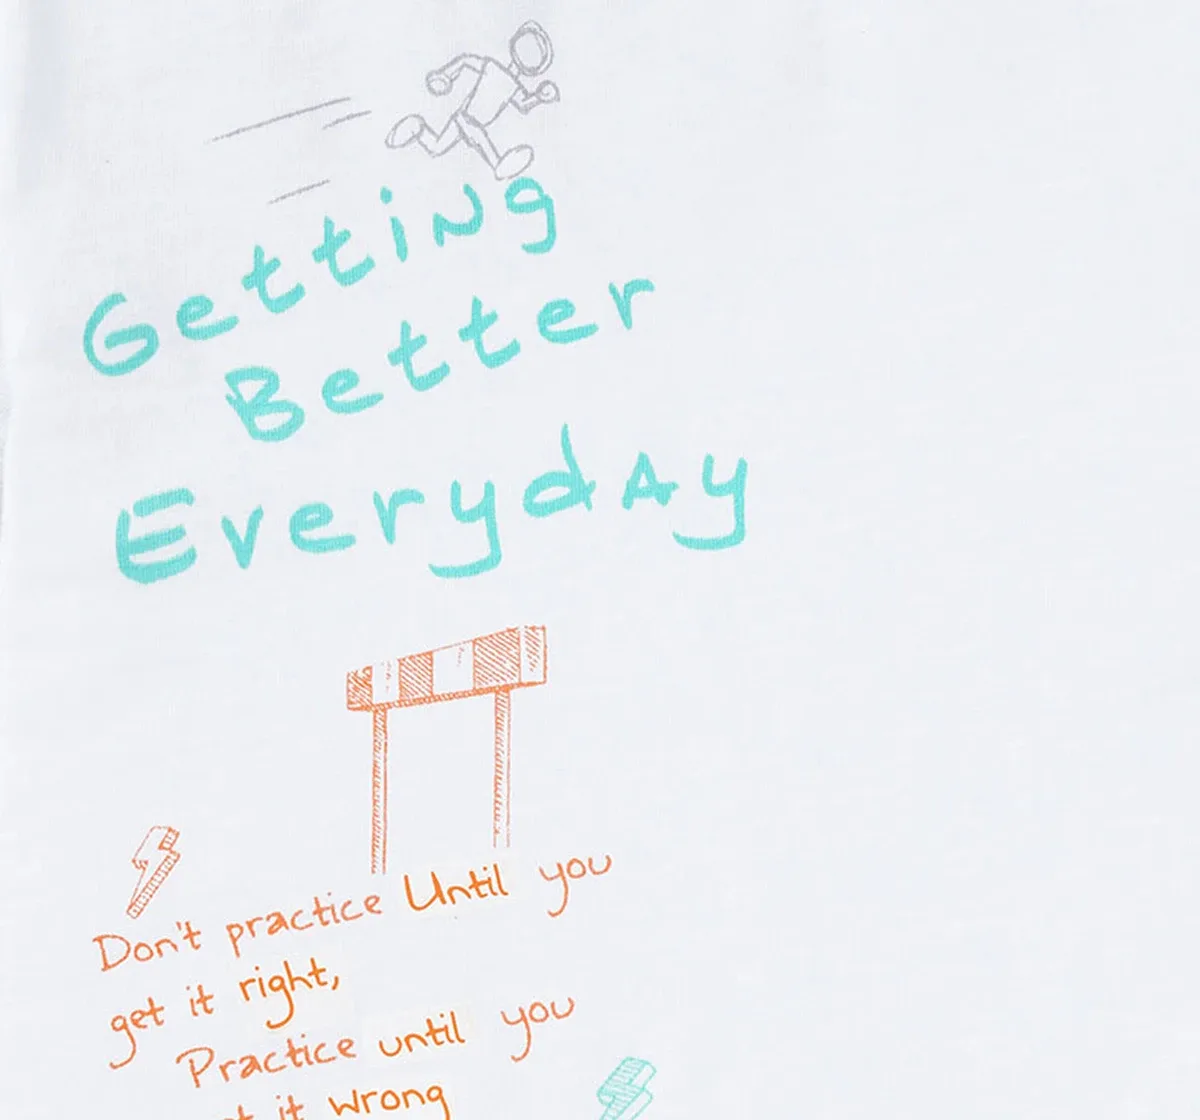 Getting
Better
EverydAy
Don't practice Until you
get it right,
Practice until you
it wrong